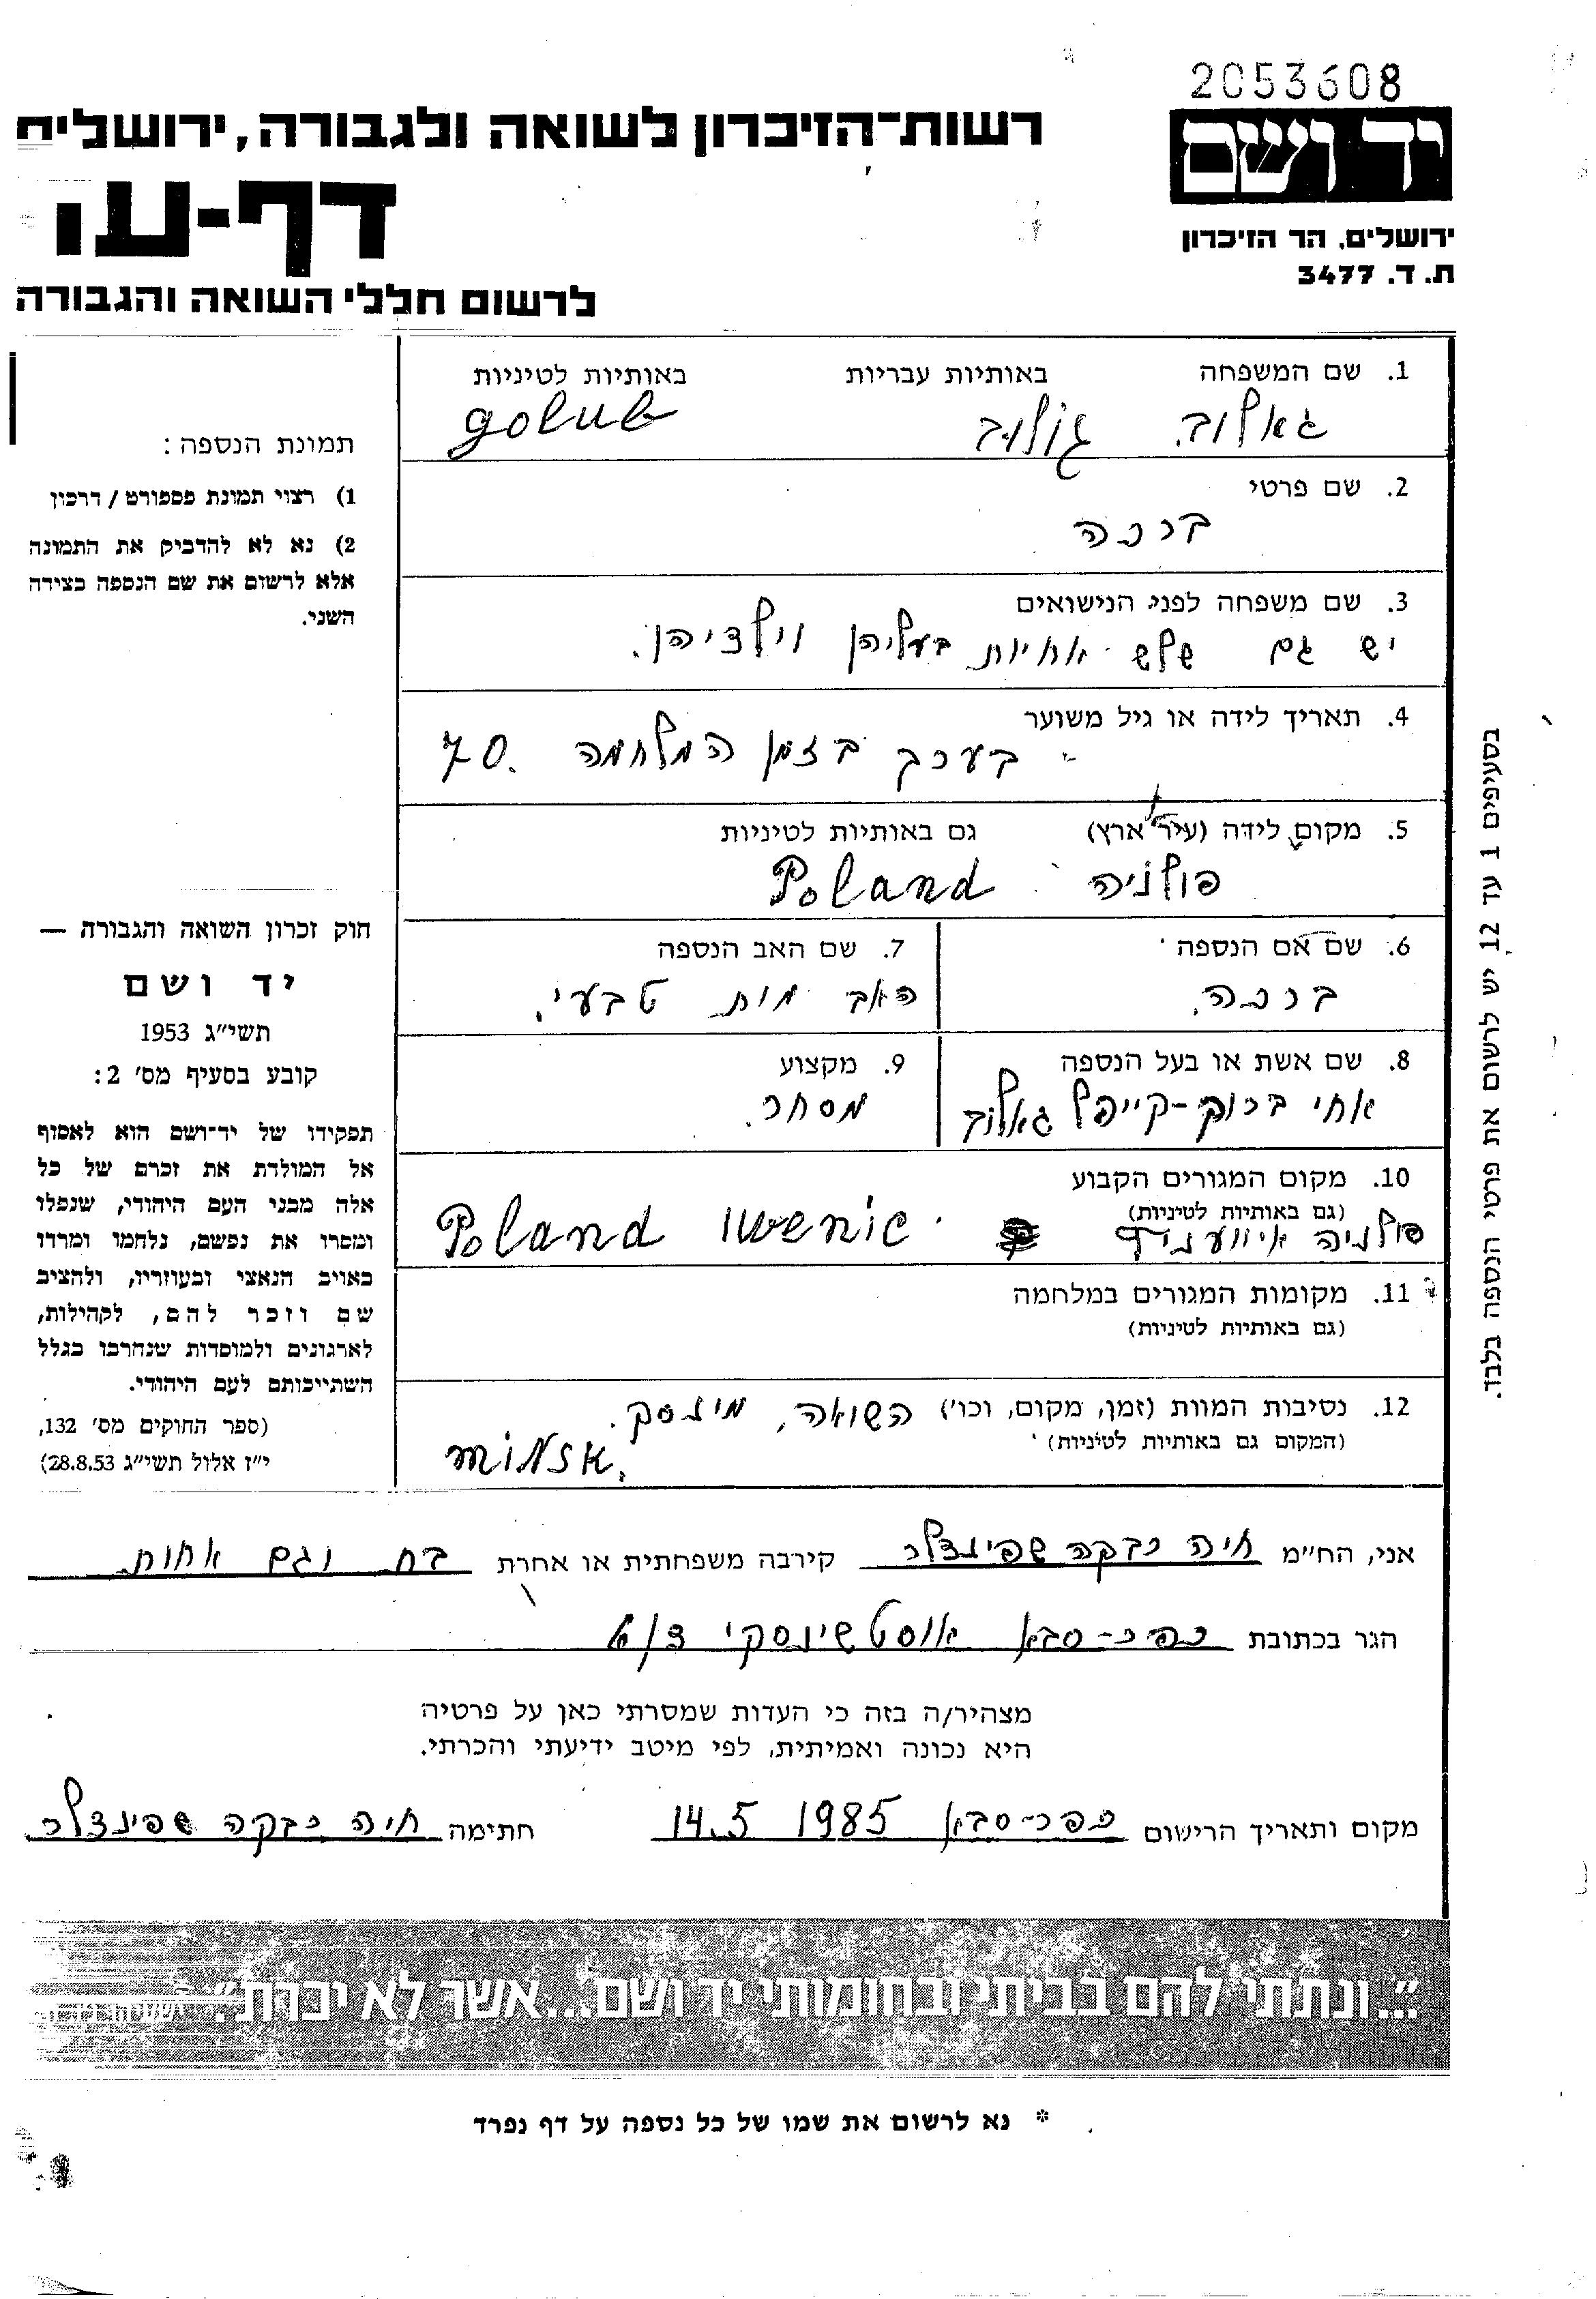 2053608
יד ושם
רשות-הזיכרון לשואה ולגבורה, ירושלים
דף-עד
ירושלים, הר הזיכרון
ת. ד. 3477
לרשום חללי השואה והגבורה
1. שם המשפחה באותיות עבריות באותיות לטיניות
גאלוב. גולוב golub
2. שם פרטי
ברכה
3. שם משפחה לפני הנישואים
יש גם שלש אחיות בעליהן וילדיהן.
4. תאריך לידה או גיל משוער
בערך בזמן המלחמה 70.
5. מקום לידה (עיר, ארץ) גם באותיות לטיניות
פולניה Poland
6. שם אם הנספה
ברכה.
7. שם האב הנספה
האב מות טבעי.
8. שם אשת או בעל הנספה
אחי ברוך-קייפל גאלוב
9. מקצוע
מסחר.
10. מקום המגורים הקבוע
(גם באותיות לטיניות)
פולניה איוועניץ Poland Iwenic
11. מקומות המגורים במלחמה
(גם באותיות לטיניות)
12. נסיבות המוות (זמן, מקום, וכו') השואה, מינסק.
(המקום גם באותיות לטיניות)
minsk.
תמונת הנספה:
1) רצוי תמונת פספורט / דרכון
2) נא לא להדביק את התמונה
אלא לרשום את שם הנספה בצידה
השני.
חוק זכרון השואה והגבורה —
יד ושם
תשי"ג 1953
קובע בסעיף מס' 2:
תפקידו של יד-ושם הוא לאסוף
אל המולדת את זכרם של כל
אלה מבני העם היהודי, שנפלו
ומסרו את נפשם, נלחמו ומרדו
באויב הנאצי ובעוזריו, ולהציב
שם וזכר להם, לקהילות,
לארגונים ולמוסדות שנחרבו בגלל
השתייכותם לעם היהודי.
(ספר החוקים מס' 132,
י"ז אלול תשי"ג 28.8.53)
בסעיפים 1 עד 12 יש לרשום את פרטי הנספה בלבד.
אני, הח"מ חיה רבקה שפינדלר קירבה משפחתית או אחרת בת וגם אחות
הגר בכתובת כפר-סבא אוסטשינסקי
מצהיר/ה בזה כי העדות שמסרתי כאן על פרטיה
היא נכונה ואמיתית, לפי מיטב ידיעתי והכרתי.
מקום ותאריך הרישום כפר-סבא 14.5 1985 חתימה חיה רבקה שפינדלר
"...ונתתי להם בביתי ובחומותי יד ושם...אשר לא יכרת"
* נא לרשום את שמו של כל נספה על דף נפרד